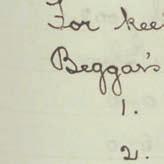 For kee
Beggar's
1.
2.